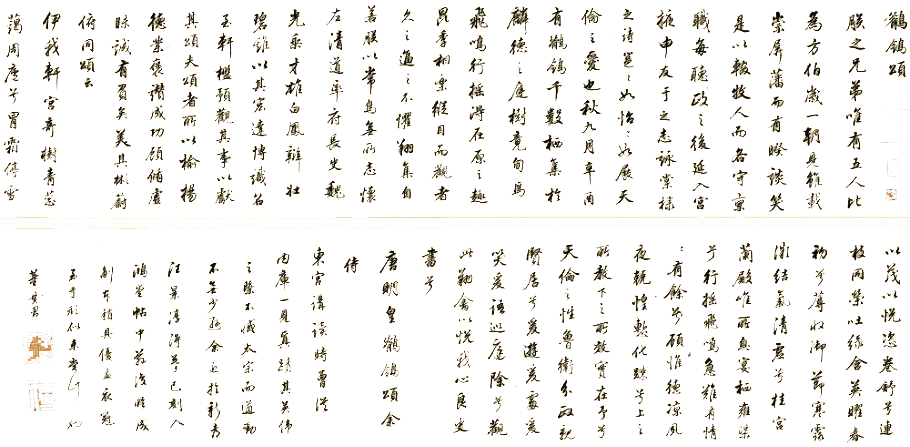 鶺鴒頌
朕之兄弟唯有五人比
為方伯歲一朝見雖載
崇屏藩而有睽談笑
是以輟牧人而各守京
職每聽政之後延入宮
掖申友于之志詠棠棣
之詩邕邕如怡怡如展天
倫之愛也秋九月辛酉
有鶺鴒千數栖集於
麟德之庭樹竟旬焉
飛鳴行搖得在原之趣
昆季相樂縱目而觀者
久之逼之不懼翔集自
若朕以常鳥無所志懷
左清道率府長史魏
光乘才雄白鳳辯壯
碧雞以其宏達博識召
至軒楹預觀其事以獻
其頌夫頌者所以揄揚
德業褒讚成功顧循虛
昧誠有負矣美其彬蔚
俯同頌云
伊我軒宮奇樹青葱
藹周廬兮冒霜停雪
以茂以悅恣卷舒兮連
枝同榮吐綠含英曜春
初兮蓐收御節寒露
微結氣清虛兮桂宮
蘭殿唯所息宴栖雍渠
兮行搖飛鳴急難有情
情有餘兮顧惟德涼夙
夜兢惶慙化疎兮上之
所教下之所效實在予兮
天倫之性魯衛分政親
賢居兮爰遊爰處爰
笑爰語巡庭除兮觀
此翔禽以悅我心良史
書兮
唐明皇鶺鴒頌余
侍
東宮講讀時曾從
内庫一見真蹟其英偉
之不減太宗而遒
不無少遜余至於新
汪景淳得之已刻入
鴻堂帖中茲復臨成
副本稍具優孟衣冠
至于形似未也
董其昌